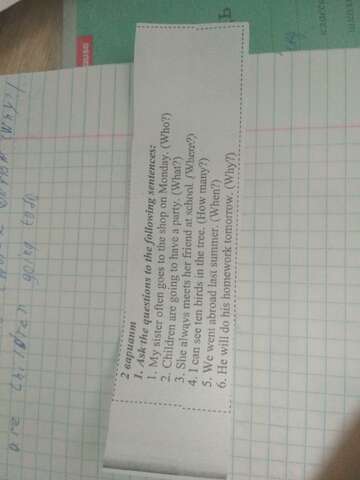 2 вариант
1. Ask the questions to the following sentences:
1. My sister often goes to the shop on Monday. (Who?)
2. Children are going to have a party. (What?)
3. She always meets her friend at school. (Where?)
4. I can see ten birds in the tree. (How many?)
5. We went abroad last summer. (When?)
6. He will do his homework tomorrow. (Why?)
are children going to